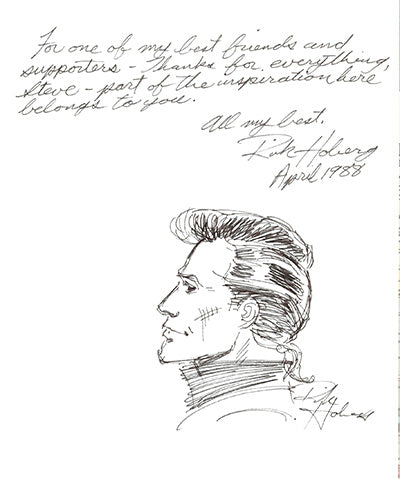 For one of my best friends and
supporters - Thanks for everything,
Steve - part of the inspiration here
belongs to you.
All my best,
Rick Hoberg
April 1988
Rick
Hoberg